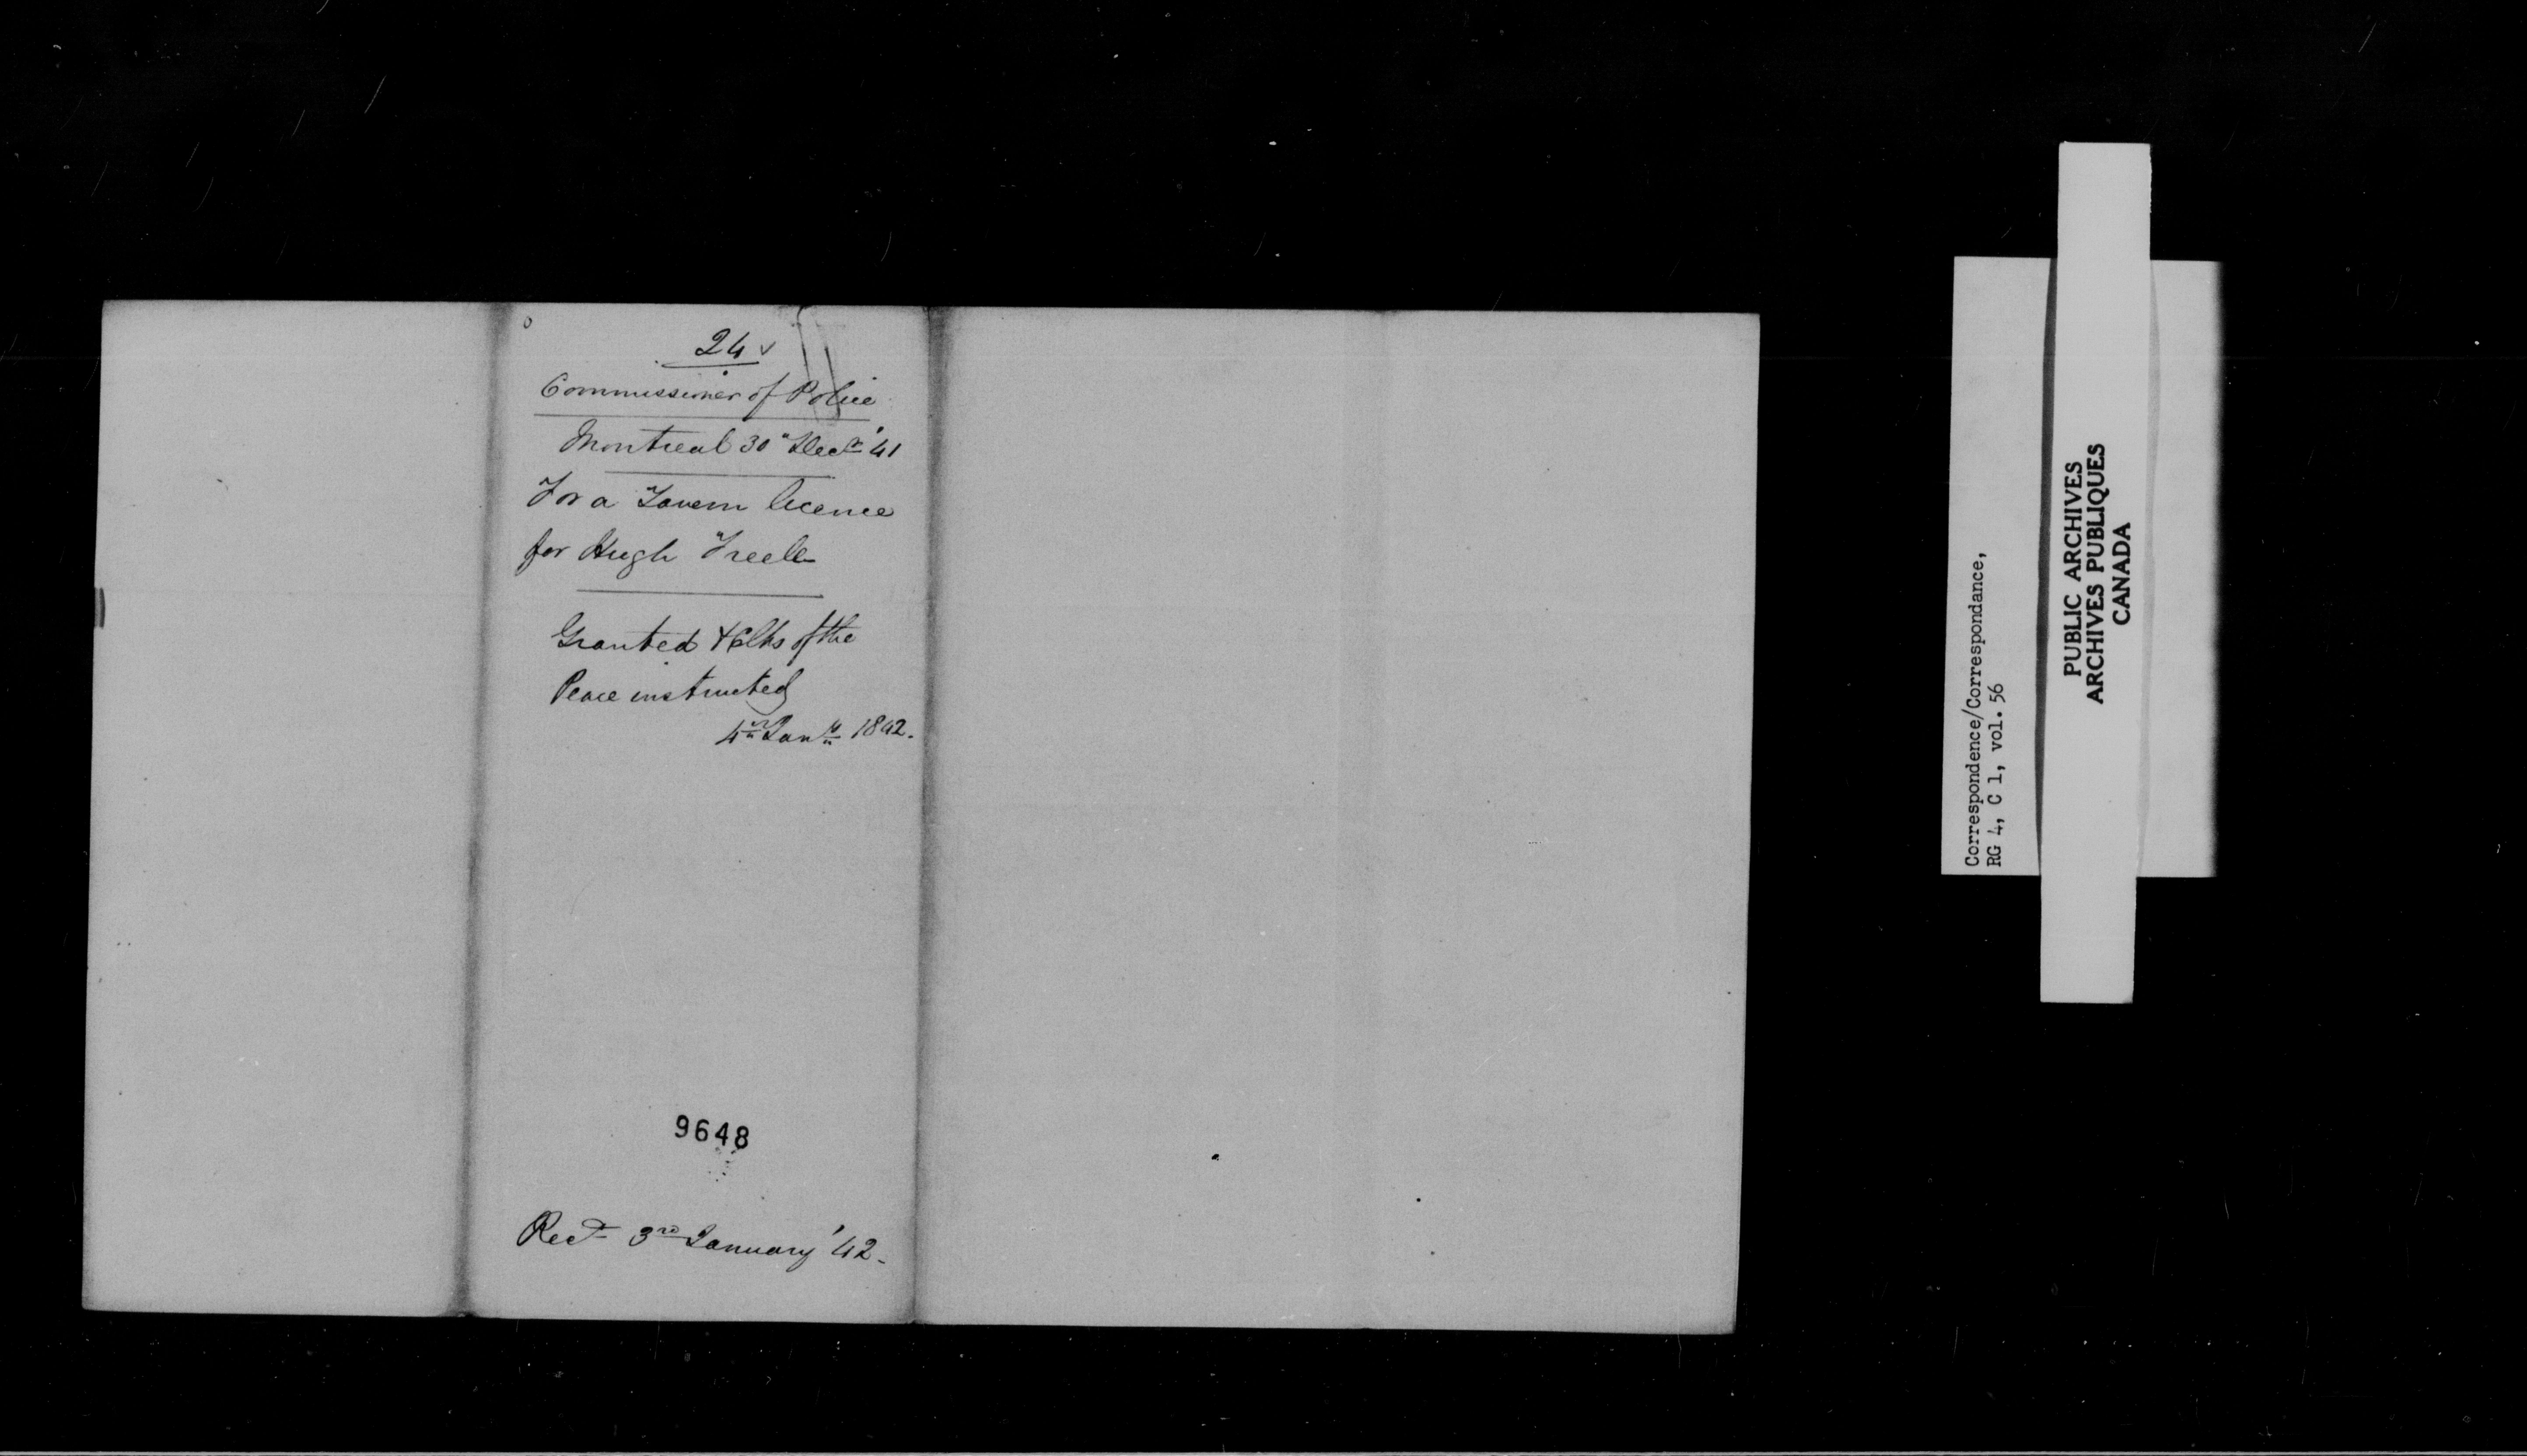 24 ✓
Commissioner of Police
Montreal 30" Decr '41
For a Tavern licence
for Hugh
Granted & Clks of the
Peace instructed
4th Jany 1842.
9648
Recd 3rd January '42-
Correspondence/Correspondance,
RG 4, C 1, vol. 56
PUBLIC ARCHIVES
ARCHIVES PUBLIQUES
CANADA